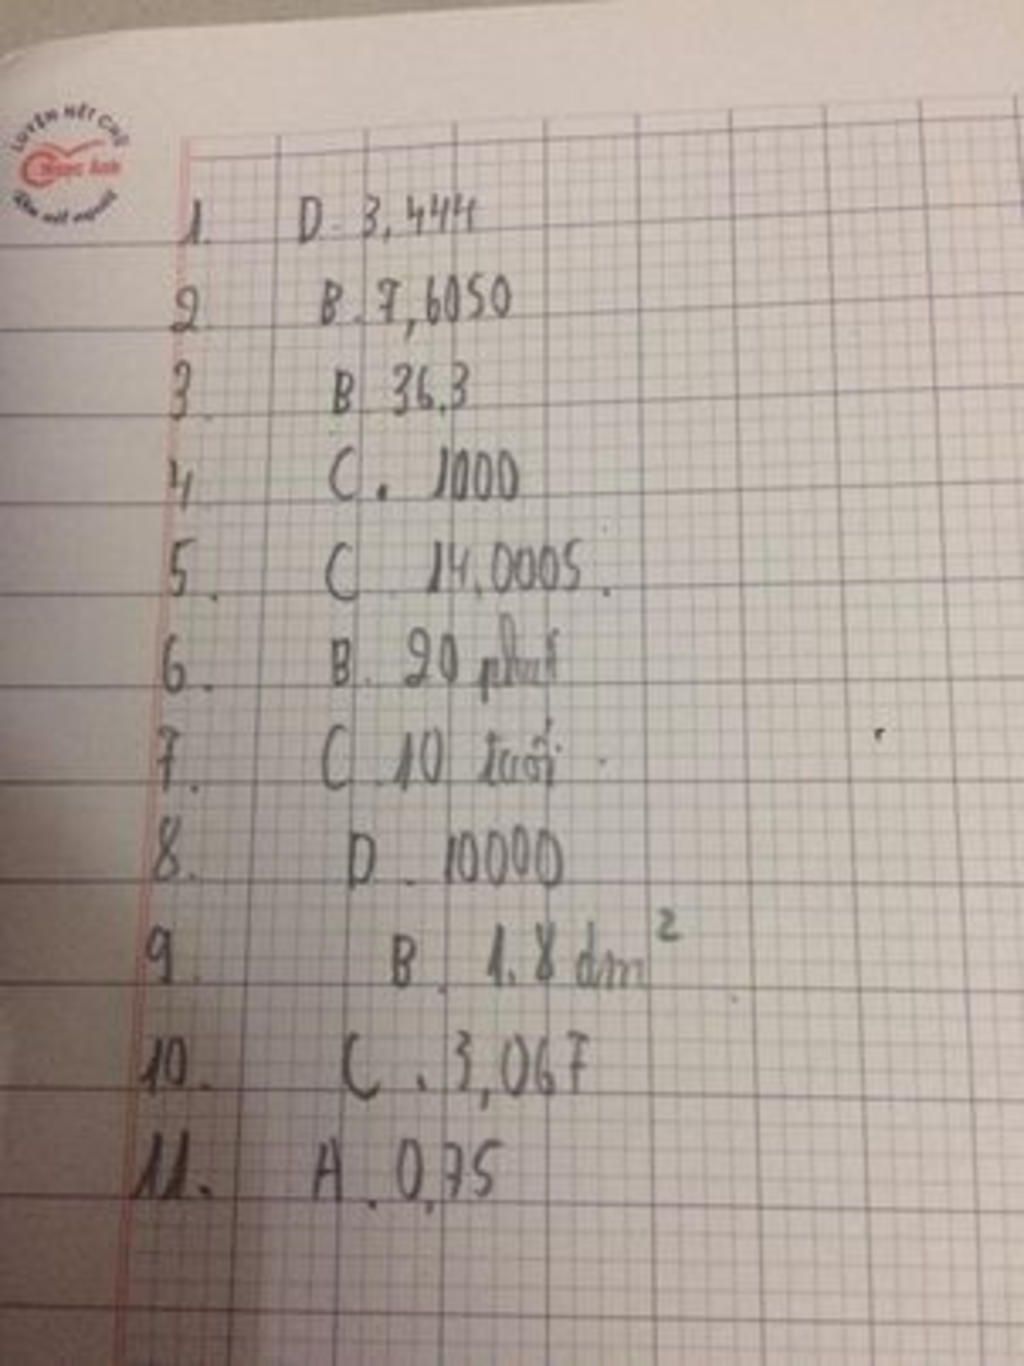 LUYỆN NÉT CHỮ
Ngọc Ánh
rèn nết người
1. D. 3,444
2 B. 7,6050
3. B 36,3
4 C. 1000
5. C 14,0005.
6. B. 20 phút
7. C. 10 tuổi.
8. D. 10000
9. B. 1,8 dm²
10. C. 3,067
11. A. 0,75